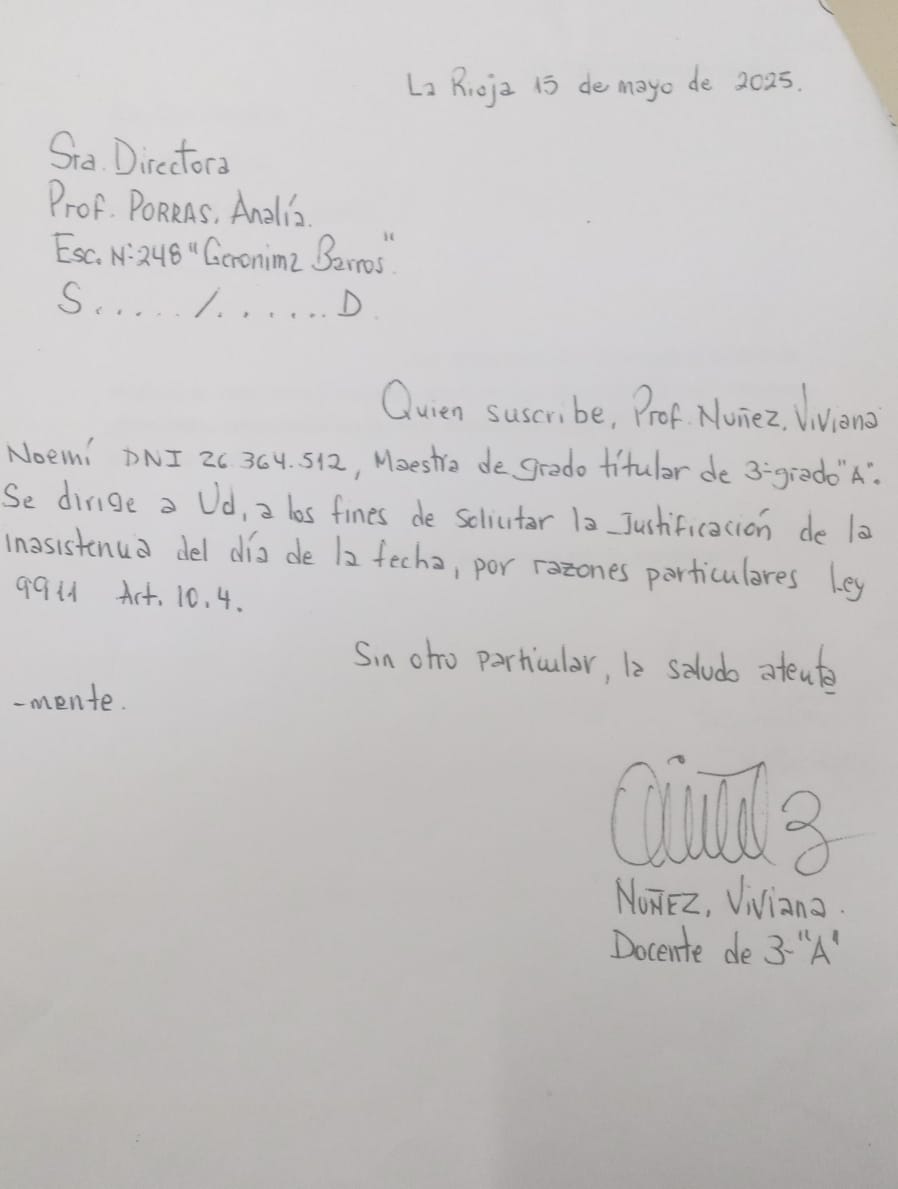 La Rioja 15 de mayo de 2025.
Sra. Directora
Prof. PORRAS, Analía.
Esc. N°248 "Geronima Barros".
S...../.......D.
Quien suscribe, Prof. Nuñez, Viviana
Noemí DNI 26.364.512, Maestra de grado títular de 3°grado "A".
Se dirige a Ud, a los fines de Solicitar la Justificación de la
inasistencia del día de la fecha, por razones particulares Ley
9911 Art. 10.4.
Sin otro particular, la saludo atenta
-mente.
NUÑEZ, Viviana.
Docente de 3°"A"